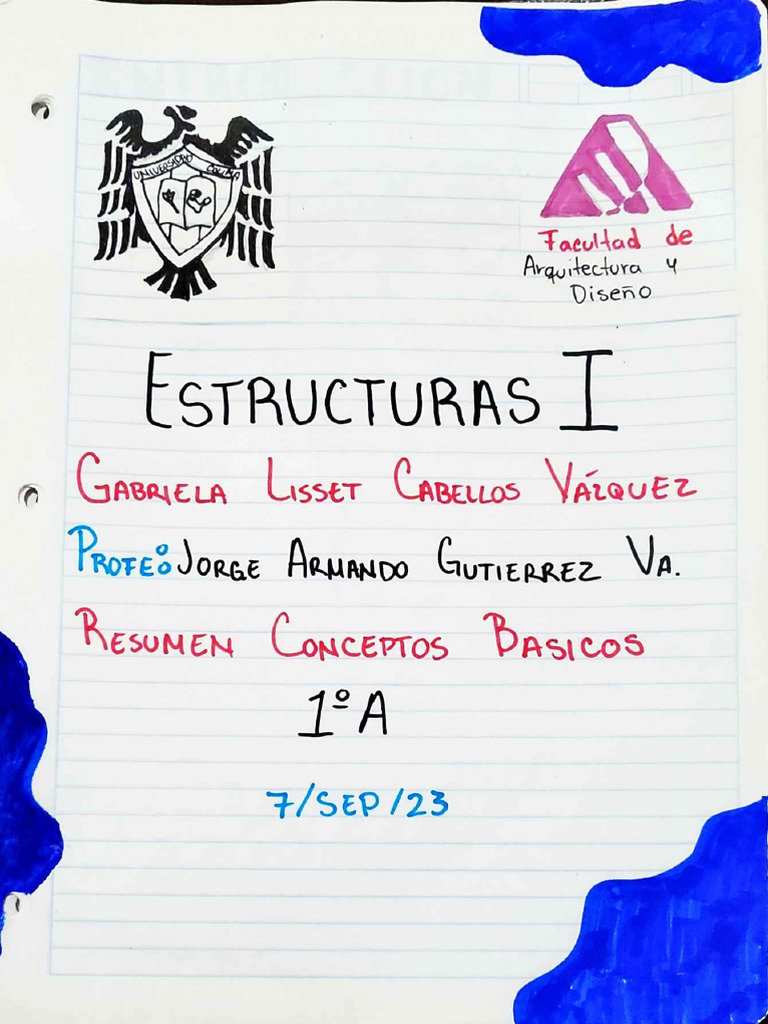 UNIVERSIDAD COLIMA
Facultad de
Arquitectura y
Diseño
ESTRUCTURAS I
GABRIELA LISSET CABELLOS VÁZQUEZ
PROFE: JORGE ARMANDO GUTIERREZ VA.
RESUMEN CONCEPTOS BASICOS
1º A
7/SEP/23